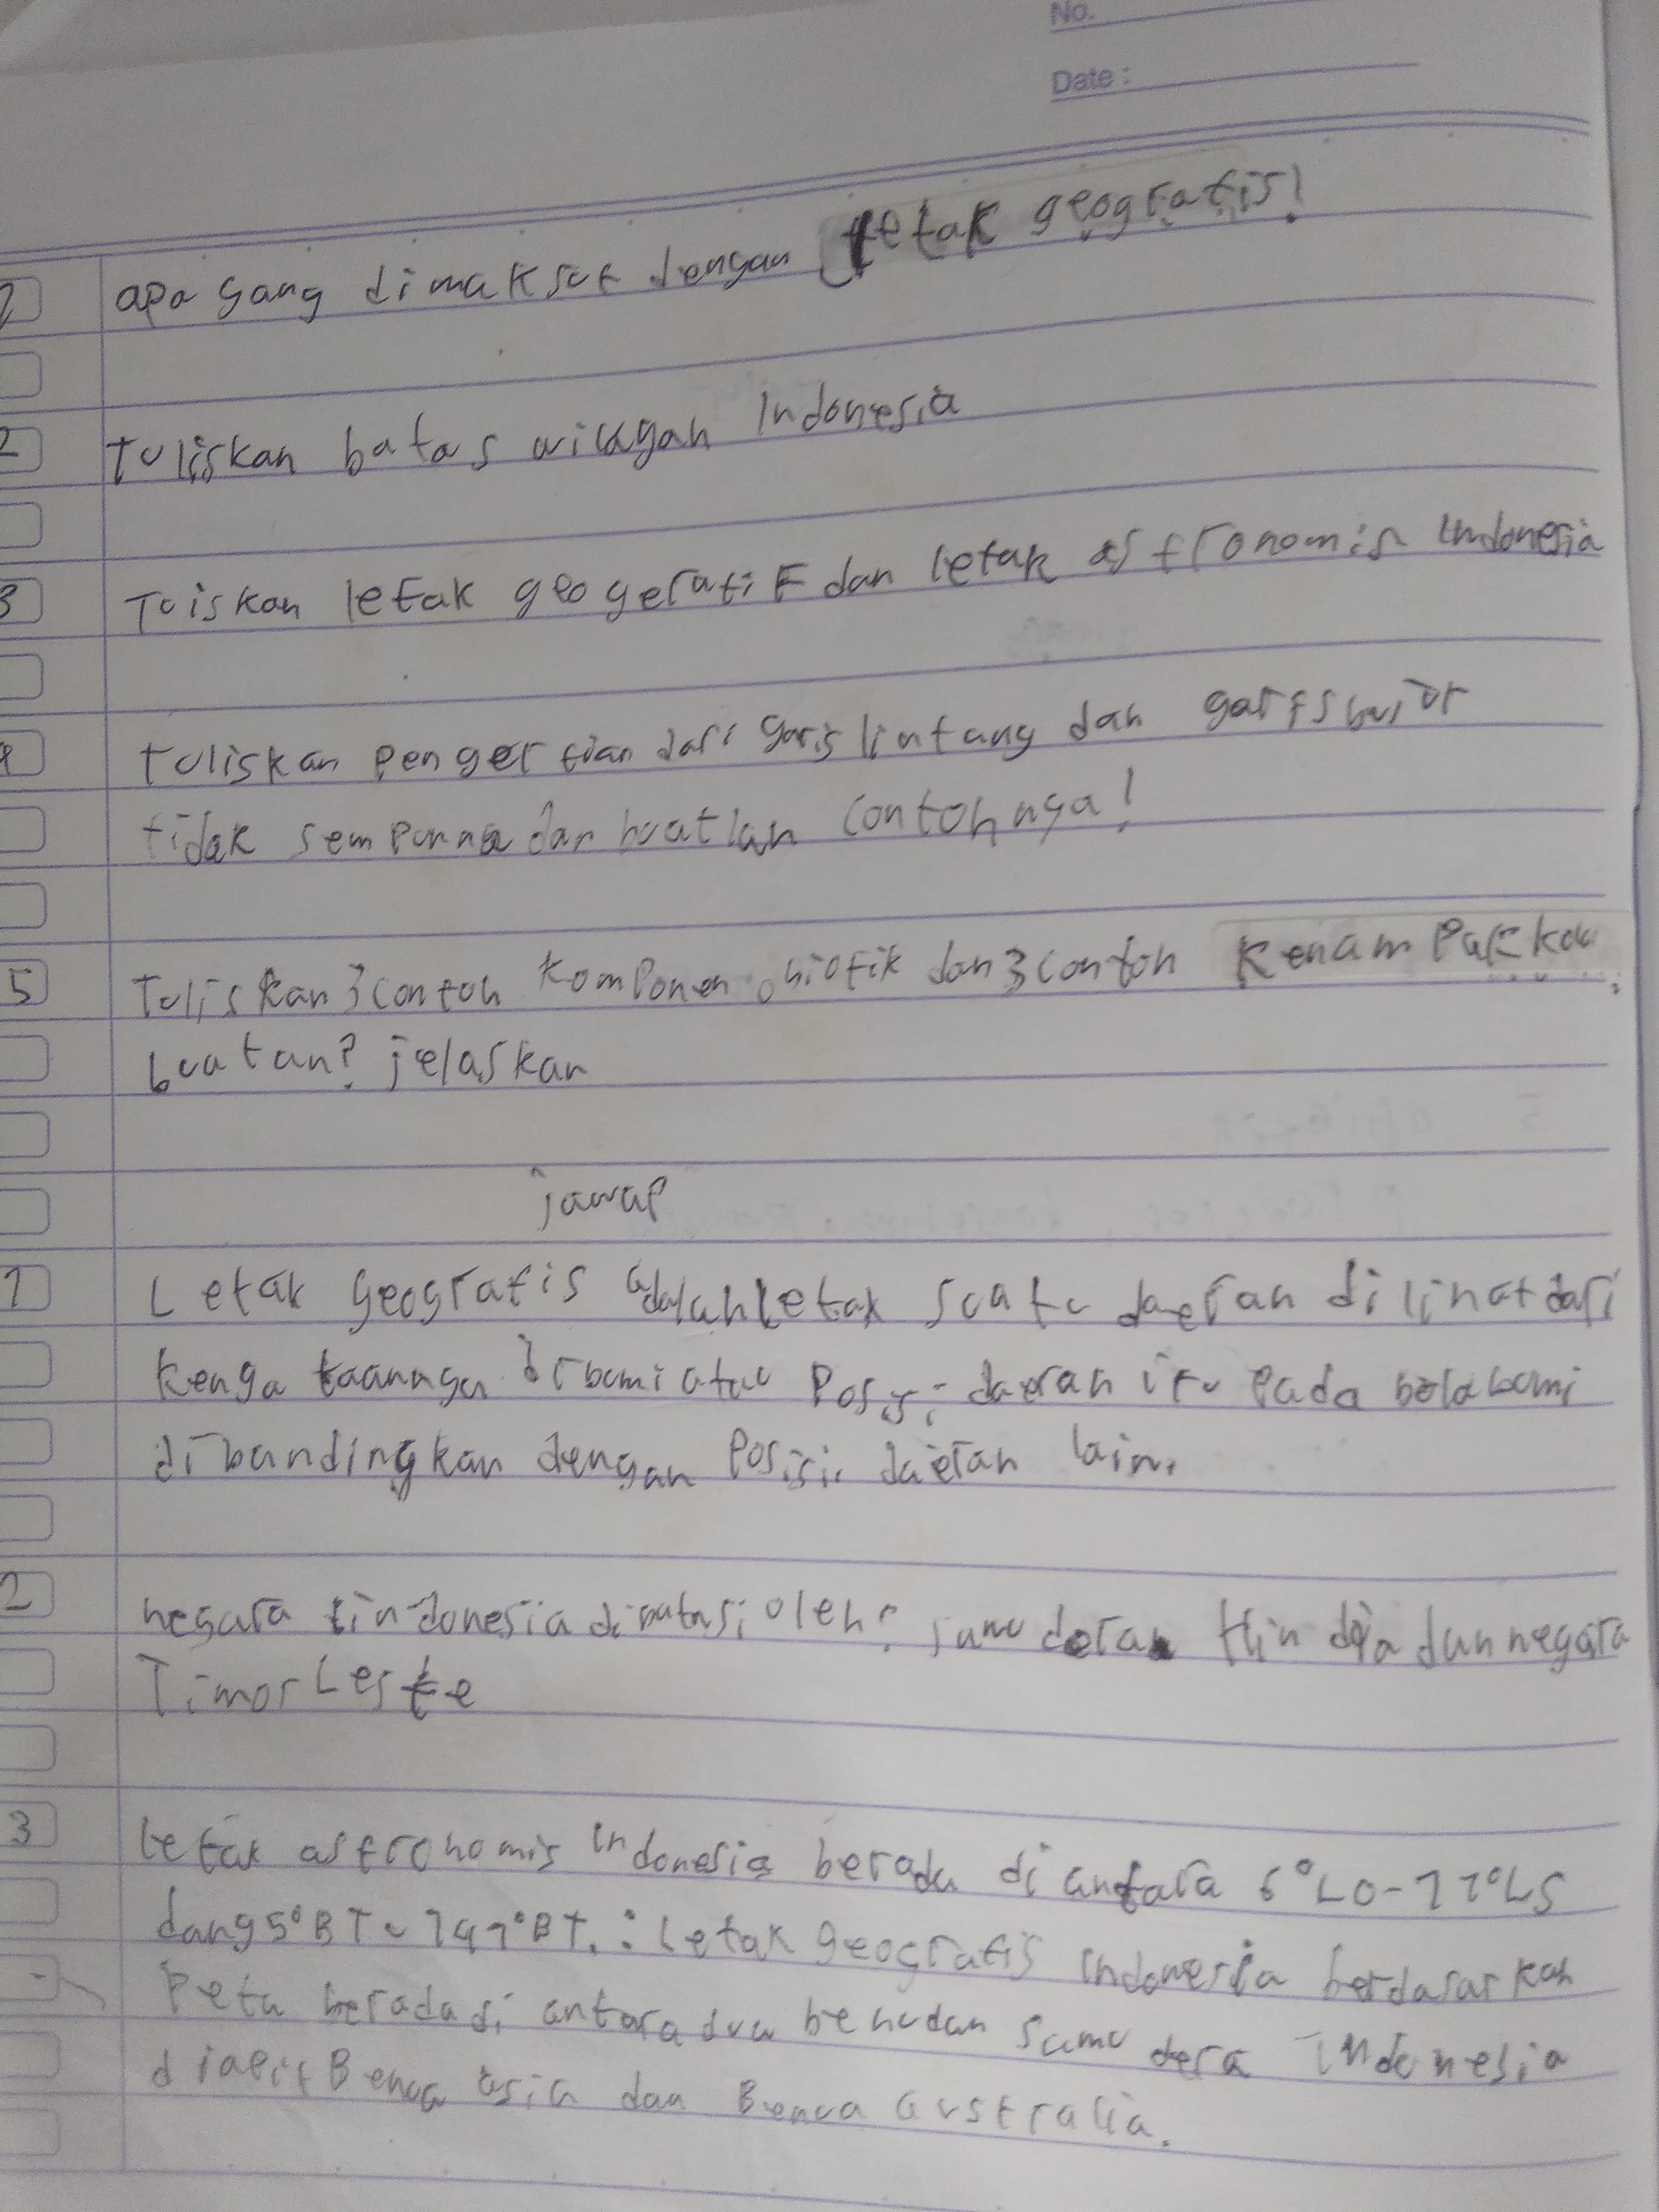 No.
Date:
1 apa yang dimaksut dengan letak geografis!
2 Tuliskan batas wilayah Indonesia
3 Tuiskan letak geogeratif dan letak astronomis Indonesia
4 tuliskan pengertian dari garis lintang dan garis bujur
tidak sempurna dan buatlah contohnya!
5 Tuliskan 3 contoh komponen abiotik dan 3 contoh kenampakkan
buatan? jelaskan
jawap
1 Letak geografis adalah letak suatu daerah dilihat dari
kenyataannya dibumi atau posisi daerah itu pada bola bumi
dibandingkan dengan posisi daerah lain.
2 negara indonesia dibatasi oleh: samuderah Hindia dan negara
Timor Leste
3 letak astronomis Indonesia berada di antara 6°LU-11°LS
dan 95°BT-141°BT.: Letak geografis indonesia berdasarkan
Peta berada di antara dua benudan samudera indonesia
diapit Benua asia dan Benua australia.